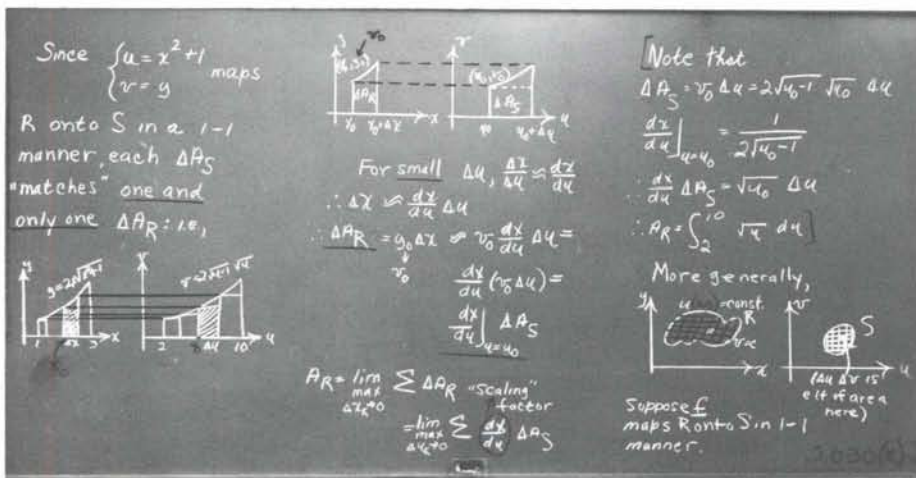 Since { u = x² + 1
v = y maps
R onto S in a 1-1
manner, each ΔA_S
"matches" one and
only one ΔA_R: i.e,
y
1 Δx 3 x
x₀
v = 2√u-1 √u
2 Δu 10 u
v₀
ΔA_R
x₀ x₀+Δx x
v
ΔA_S
u₀ u₀+Δu u
For small Δu, Δx/Δu ≈ dx/du
∴ Δx ≈ dx/du Δu
∴ ΔA_R = y₀ Δx ≈ v₀ dx/du Δu =
↓
v₀
dx/du (v₀ Δu) =
dx/du |_{u=u₀} ΔA_S
A_R = lim_{max Δx_k→0} Σ ΔA_R "scaling"
factor
= lim_{max Δu_k→0} Σ dx/du ΔA_S
[Note that
ΔA_S = v₀ Δu = 2√u₀-1 √u₀ Δu
dx/du |_{u=u₀} = 1/(2√u₀-1)
∴ dx/du ΔA_S = √u₀ Δu
∴ A_R = ∫₂¹⁰ √u du]
More generally,
y
u = const.
R
v = c
x
v
S
u
(Δu Δv is
elt of area
here)
Suppose f
maps R onto S in 1-1
manner.